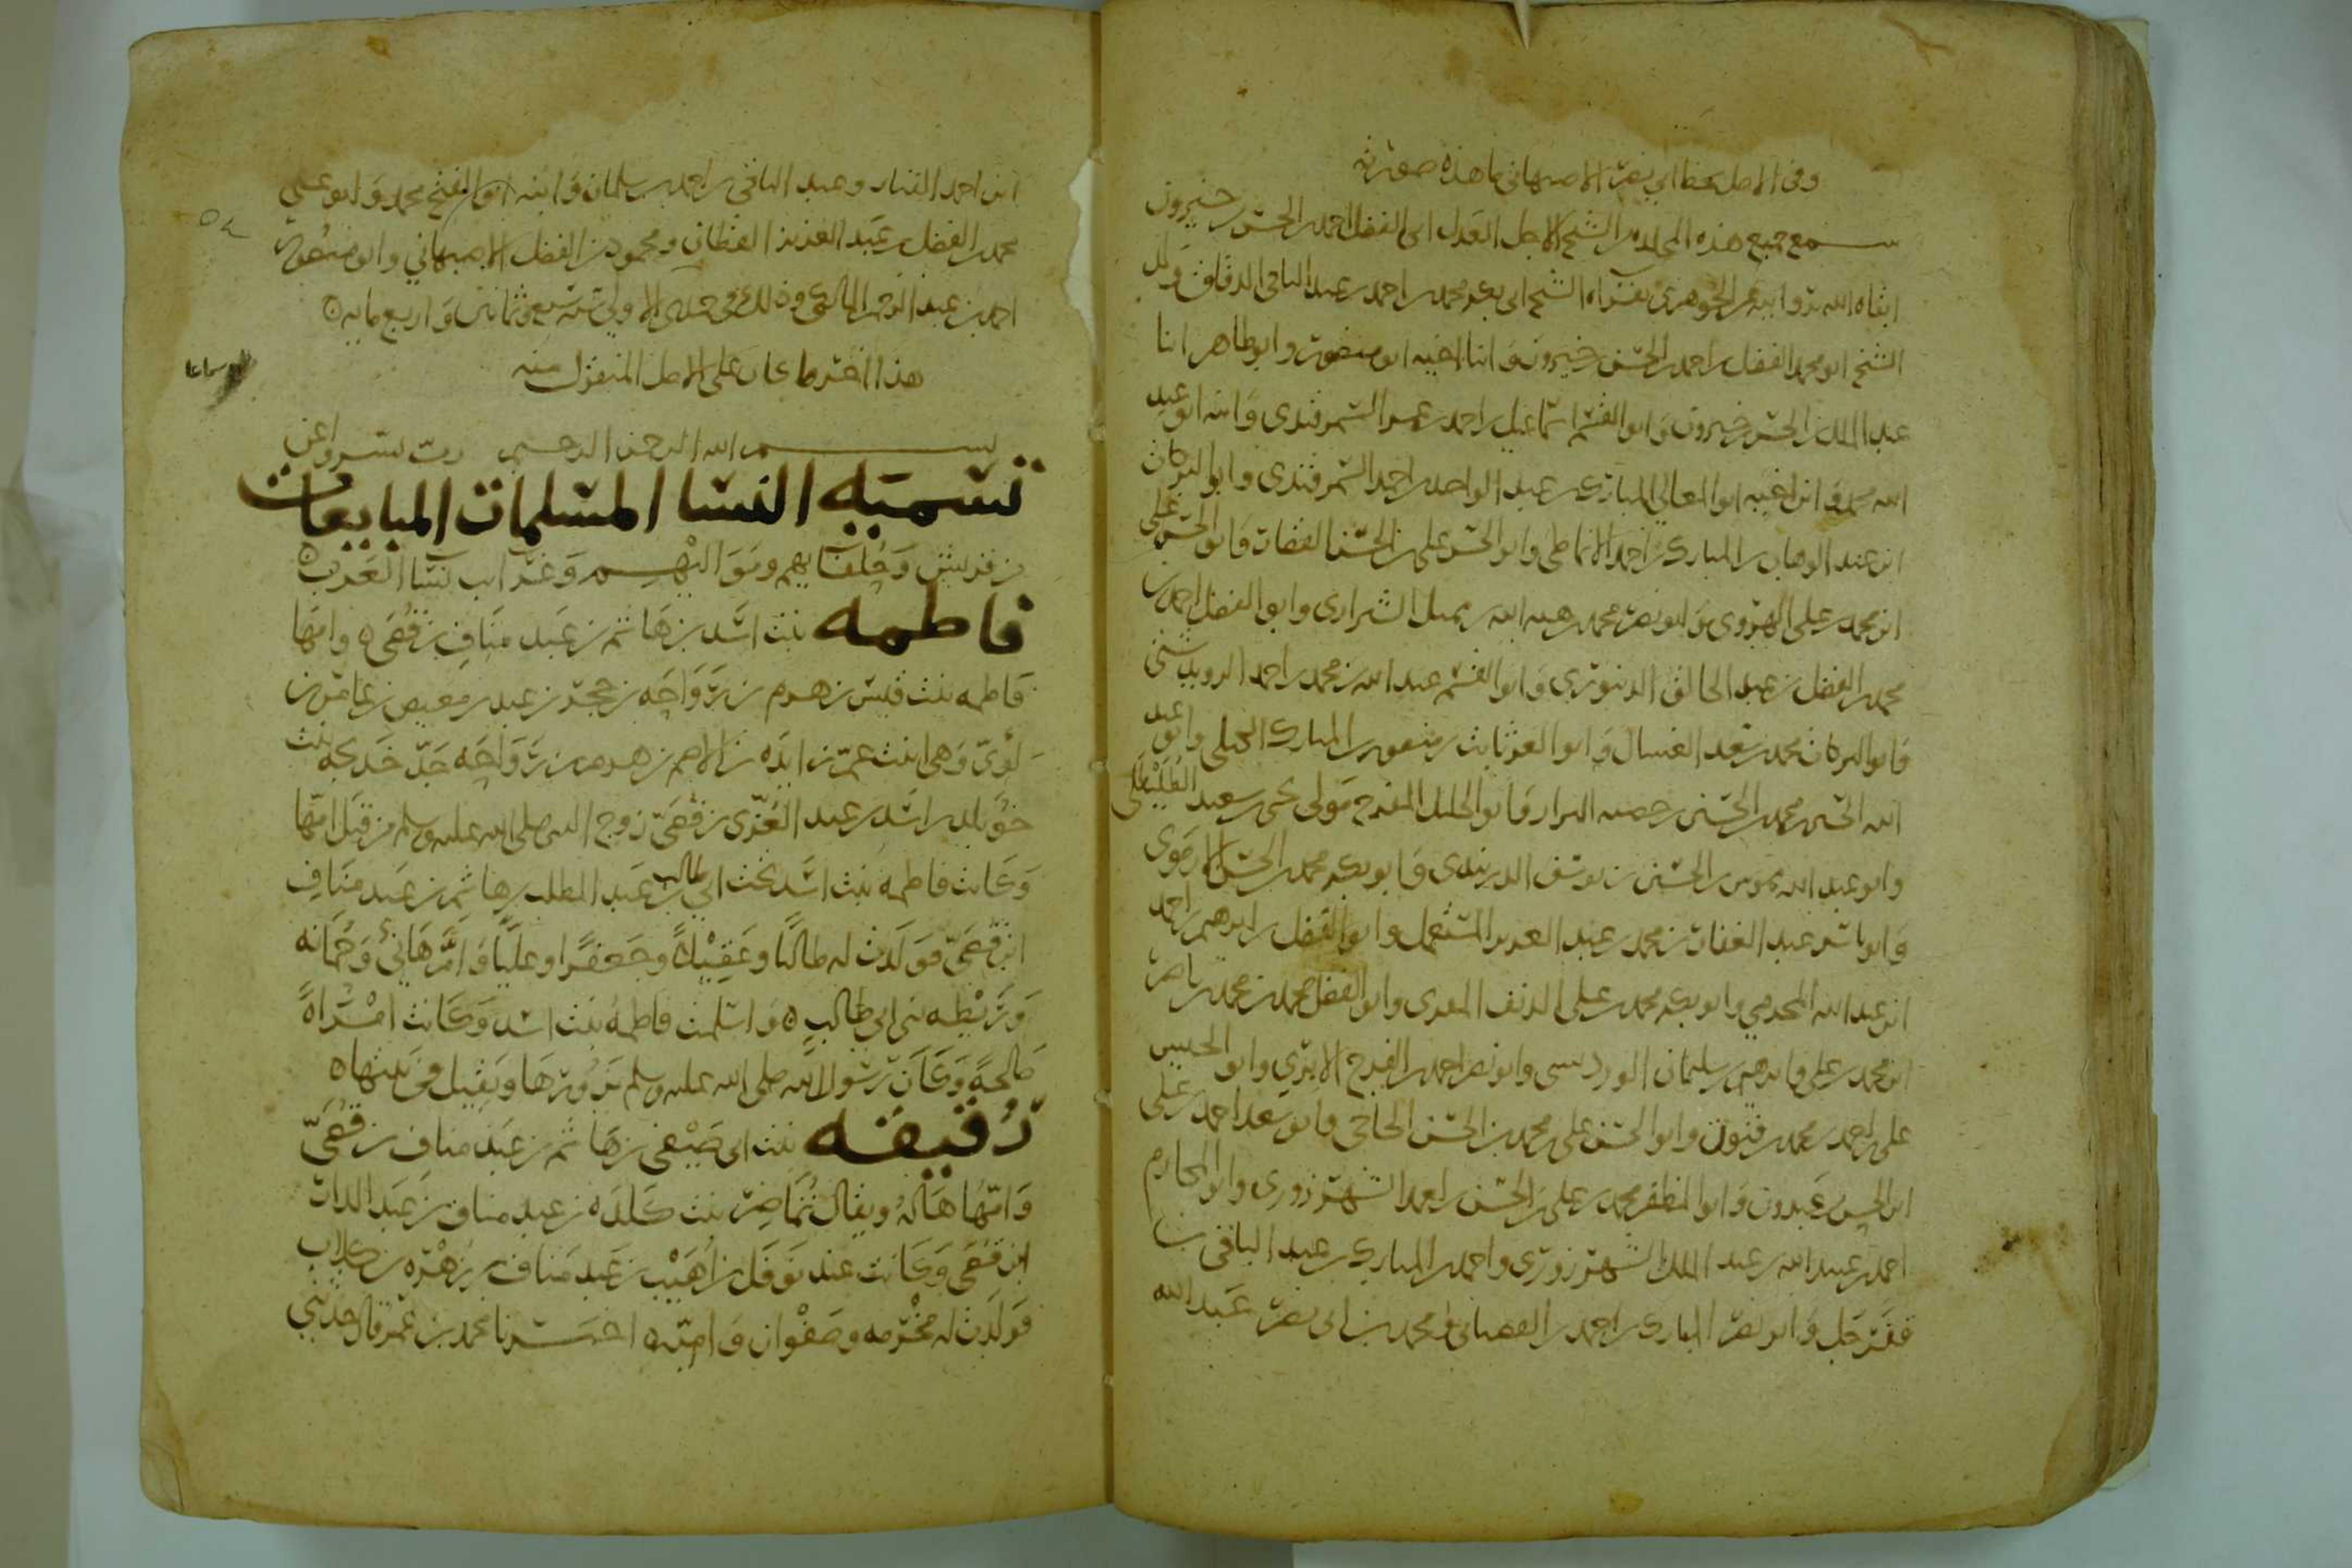 وفي الاصل بخط ابي نصر الاصبهاني ما هذه صورته
سمع جميع هذه المجلده من الشيخ الاجل العدل ابي الفضل احمد بن الحسن بن خيرون
ابقاه الله بروايته عن الجوهري بقراءه الشيخ ابي بكر محمد بن احمد بن عبد الباقي الدقاق ولد
الشيخ ابو محمد الفضل بن احمد بن الحسن بن خيرون وابنا اخيه ابو منصور وابو طاهر ابنا
عبد الملك بن الحسن بن خيرون وابو القسم اسماعيل بن احمد بن عمر السمرقندي وابنه ابو عبد
الله محمد وابن اخيه ابو المعالي المبارك بن عبد الواحد بن احمد السمرقندي وابو البركات
ابن عبد الوهاب بن المبارك بن احمد الانماطي وابو الحسن علي بن الحسن القصار وابو الحسن علي
ابن محمد بن علي الهروي وابو نصر محمد بن هبه الله بن مميل الشيرازي وابو الفضل احمد بن
محمد بن الفضل بن عبد الخالق الدينوري وابو القسم عبد الله بن محمد بن احمد
وابو البركات محمد بن سعد الغسال وابو العز ثابت بن منصور بن المبارك الجيلي وابو عبد
الله الحسين بن محمد بن الحسين بن البزاز وابو الجليل المفرح مولى يحيى بن سعيد
وابو عبد الله بن الحسين بن يوسف الدربندي وابو بكر محمد بن الحسن الارموي
وابو ياسر عبد الغفار بن محمد بن عبد العزيز المستعمل وابو الفضل بن ابرهيم بن احمد
ابن عبد الله المخرمي وابو بكر محمد بن علي الدنف المقري وابو الفضل محمد بن محمد بن ناصر
ابن محمد بن علي وابرهيم بن سليمان الورديسي وابو نصر احمد بن الفرج الابري وابو الحسين
علي بن احمد بن محمد بن فتون وابو الحسن علي بن محمد بن الحسن الحاجي وابو سعد احمد بن علي
ابن الحسن بن عبدون وابو المظفر محمد بن علي بن الحسن بن احمد الشهرزوري وابو المكارم
احمد بن عبيد الله بن عبد الملك الشهرزوري واحمد بن المبارك بن عبد الباقي بن
قفرجل وابو نصر المبارك بن احمد بن ومحمد بن ابي نصر بن عبد الله
ابن احمد وعبد الباقي بن احمد بن سلمان وابنه ابو الفتح محمد وابو علي
محمد بن الفضل بن عبد العزيز القطان ومحمود بن الفضل الاصبهاني وابو منصور
احمد بن عبد الرحمن المالكي وذلك في جمادى الاولى سنه سبع وثمانين واربع مايه
هذا اخر ما كان على الاصل المنقول منه
بسم الله الرحمن الرحيم رب يسر واعن
تسميه النسا المسلمات المبايعات
من قريش وحلفايهم ومواليهم وغرايب نسا العرب
فاطمه بنت اسد بن هاشم بن عبد مناف بن قصي وامها
فاطمه بنت قيس بن هرم بن رواحه بن حجر بن عبد بن معيص بن عامر بن
لؤي وهي ابنت عم زايده بن الاصم بن هرم بن رواحه جد خديجه بنت
خويلد بن اسد بن عبد العزى بن قصي زوج النبي صلى الله عليه وسلم من قبل امها
وكانت فاطمه بنت اسد تحت ابي طالب بن عبد المطلب بن هاشم بن عبد مناف
ابن قصي فولدت له طالبا وعقيلا وجعفرا وعليا وام هانئ وجمانه
وريطه بني ابي طالب واسلمت فاطمه بنت اسد وكانت امراه
صالحة وكان رسول الله صلى الله عليه وسلم يزورها ويقيل في بيتها
رقيقه بنت ابي صيفي بن هاشم بن عبد مناف بن قصي
وامها هاله ويقال تماضر بنت كلده بن عبد مناف بن عبد الدار
ابن قصي وكانت عند نوفل بن اهيب بن عبد مناف بن زهره بن كلاب
فولدت له مخرمه وصفوان واميه اخبرنا محمد بن عمر قال حدثني